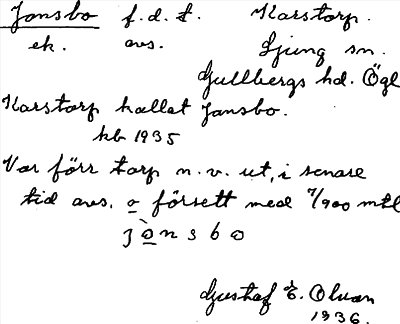 Jansbo f.d.t. Karstorp.
ek. avs. Ljung sn.
Gullbergs hd. Ögl
Karstorp kallat Jansbo.
kb 1935
Var förr torp n.v. ut, i senare
tid avs. o försett med 7/900 mtl
jònsbo
Gustaf E. Olvan
1936.